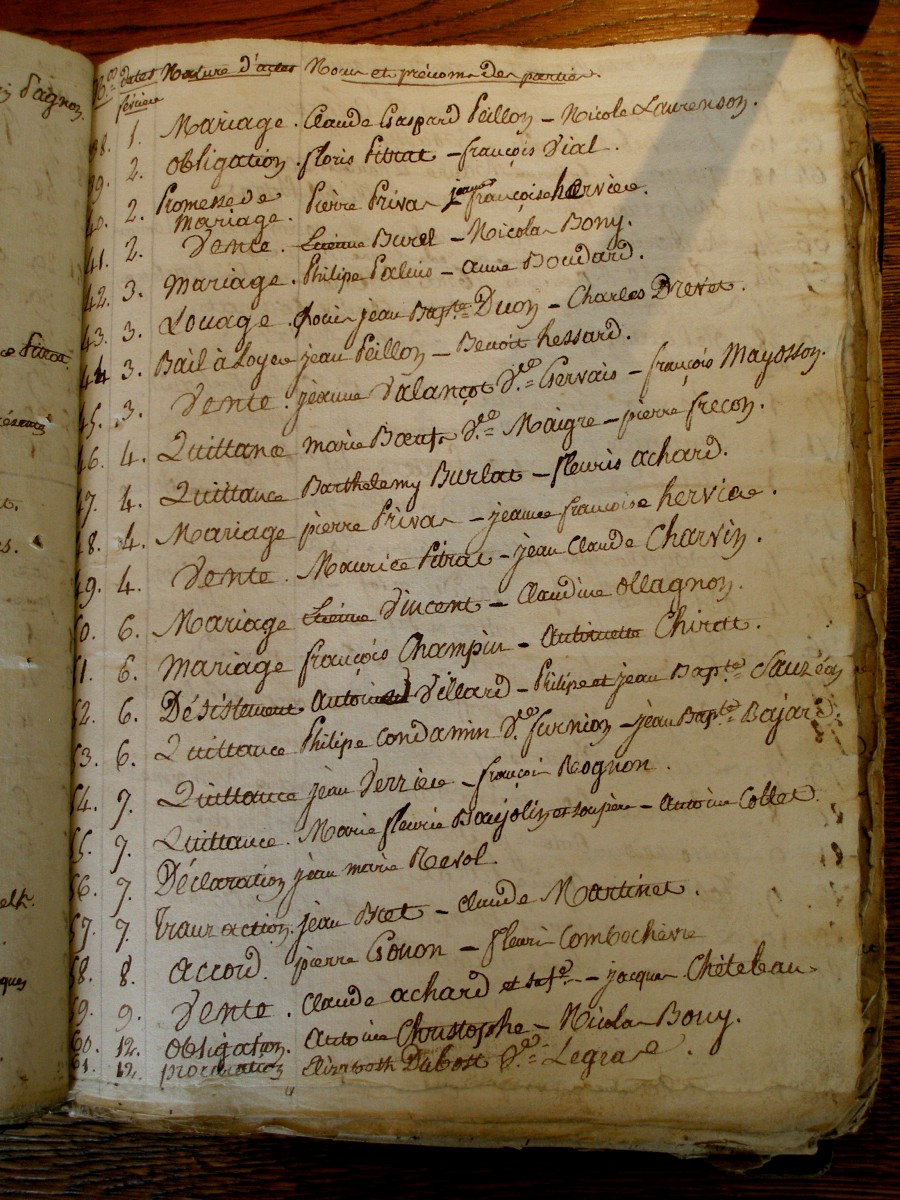 d'agnon.
N.os dates Nature d'actes Noms et prénoms des parties.
février
38. 1. Mariage. Claude Gaspard Peillon - Nicole Laurenson.
39. 2. Obligation. floris Pitrat - françois Vial.
40. 2. Promesse de Mariage. Pierre Privas jeanne françoise hervier.
41. 2. Vente. Etienne Burel - Nicolas Bony.
42. 3. Mariage. Philipe Paluis - anne Boudard.
43. 3. Louage. Louis jean Bapte Duon - Charles Drevet.
44 3. Bail à Loyer jean Peillon - Benoit hessard.
45. 3. Vente. jeanne Valançot Ve Gervais - françois Mayosson.
46. 4. Quittance marie Bœuf Ve Maigre - pierre frecon.
47. 4. Quittance Barthelemy Burlat - fleuris achard.
48. 4. Mariage pierre Privas - jeanne françoise hervier.
49. 4. Vente. Maurice Pitrat - jean Claude Charvin.
50. 6. Mariage Etienne Vincent - Claudine Ollagnon.
51. 6. Mariage françois Champin - Antoinette Chirat.
52. 6. Désistement Antoine Villard - Philipe et jean Bapte Sauzéas
53. 6. Quittance Philipe Condamin Ve furnion - jean Bapte Bajard.
54. 7. Quittance jean Verrier - françois Rognon.
55. 7. Quittance. Marie fleurie Bajolin et son père - Antoine Collet.
56. 7. Déclaration jean marie Revol.
57. 7. Transaction. jean Biet - Claude Martinet.
58. 8. Accord. pierre Gonon - fleuri Combechèvre
59. 9. Vente. Claude achard et sa fe - jacques Chételeau
60. 12. Obligation. Antoine Christophe - Nicolas Bony.
61. 12. procuration Elizabeth Dubost Ve Legras.